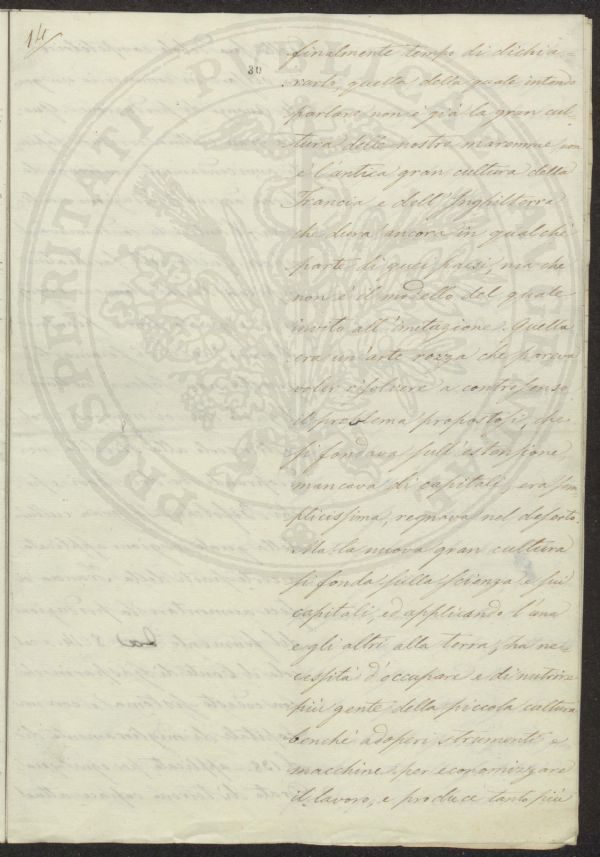 14
30
finalmente tempo di dichia-
rarlo, quella della quale intendo
parlare, non è già la gran cul-
tura delle nostre maremme, non
è l'antica gran cultura della
Francia e dell'Inghilterra
che dura ancora in qualche
parte di quei paesi, ma che
non è il modello del quale
invito all'imitazione. Quella
era un'arte rozza che pareva
voler risolvere a controsenso
il problema propostosi, che
si fondava sull'estensione,
mancava di capitali, era sem-
plicissima, regnava nel deserto.
Ma la nuova gran cultura
si fonda sulla scienza e sui
capitali, ed applicando l'una
e gli altri alla terra, ha ne-
cessità d'occupare e di nutrire
più gente della piccola cultura
benchè adoperi strumenti e
macchine per economizzare
il lavoro, e produce tanto più
PROSPERITATI PUBLICAE